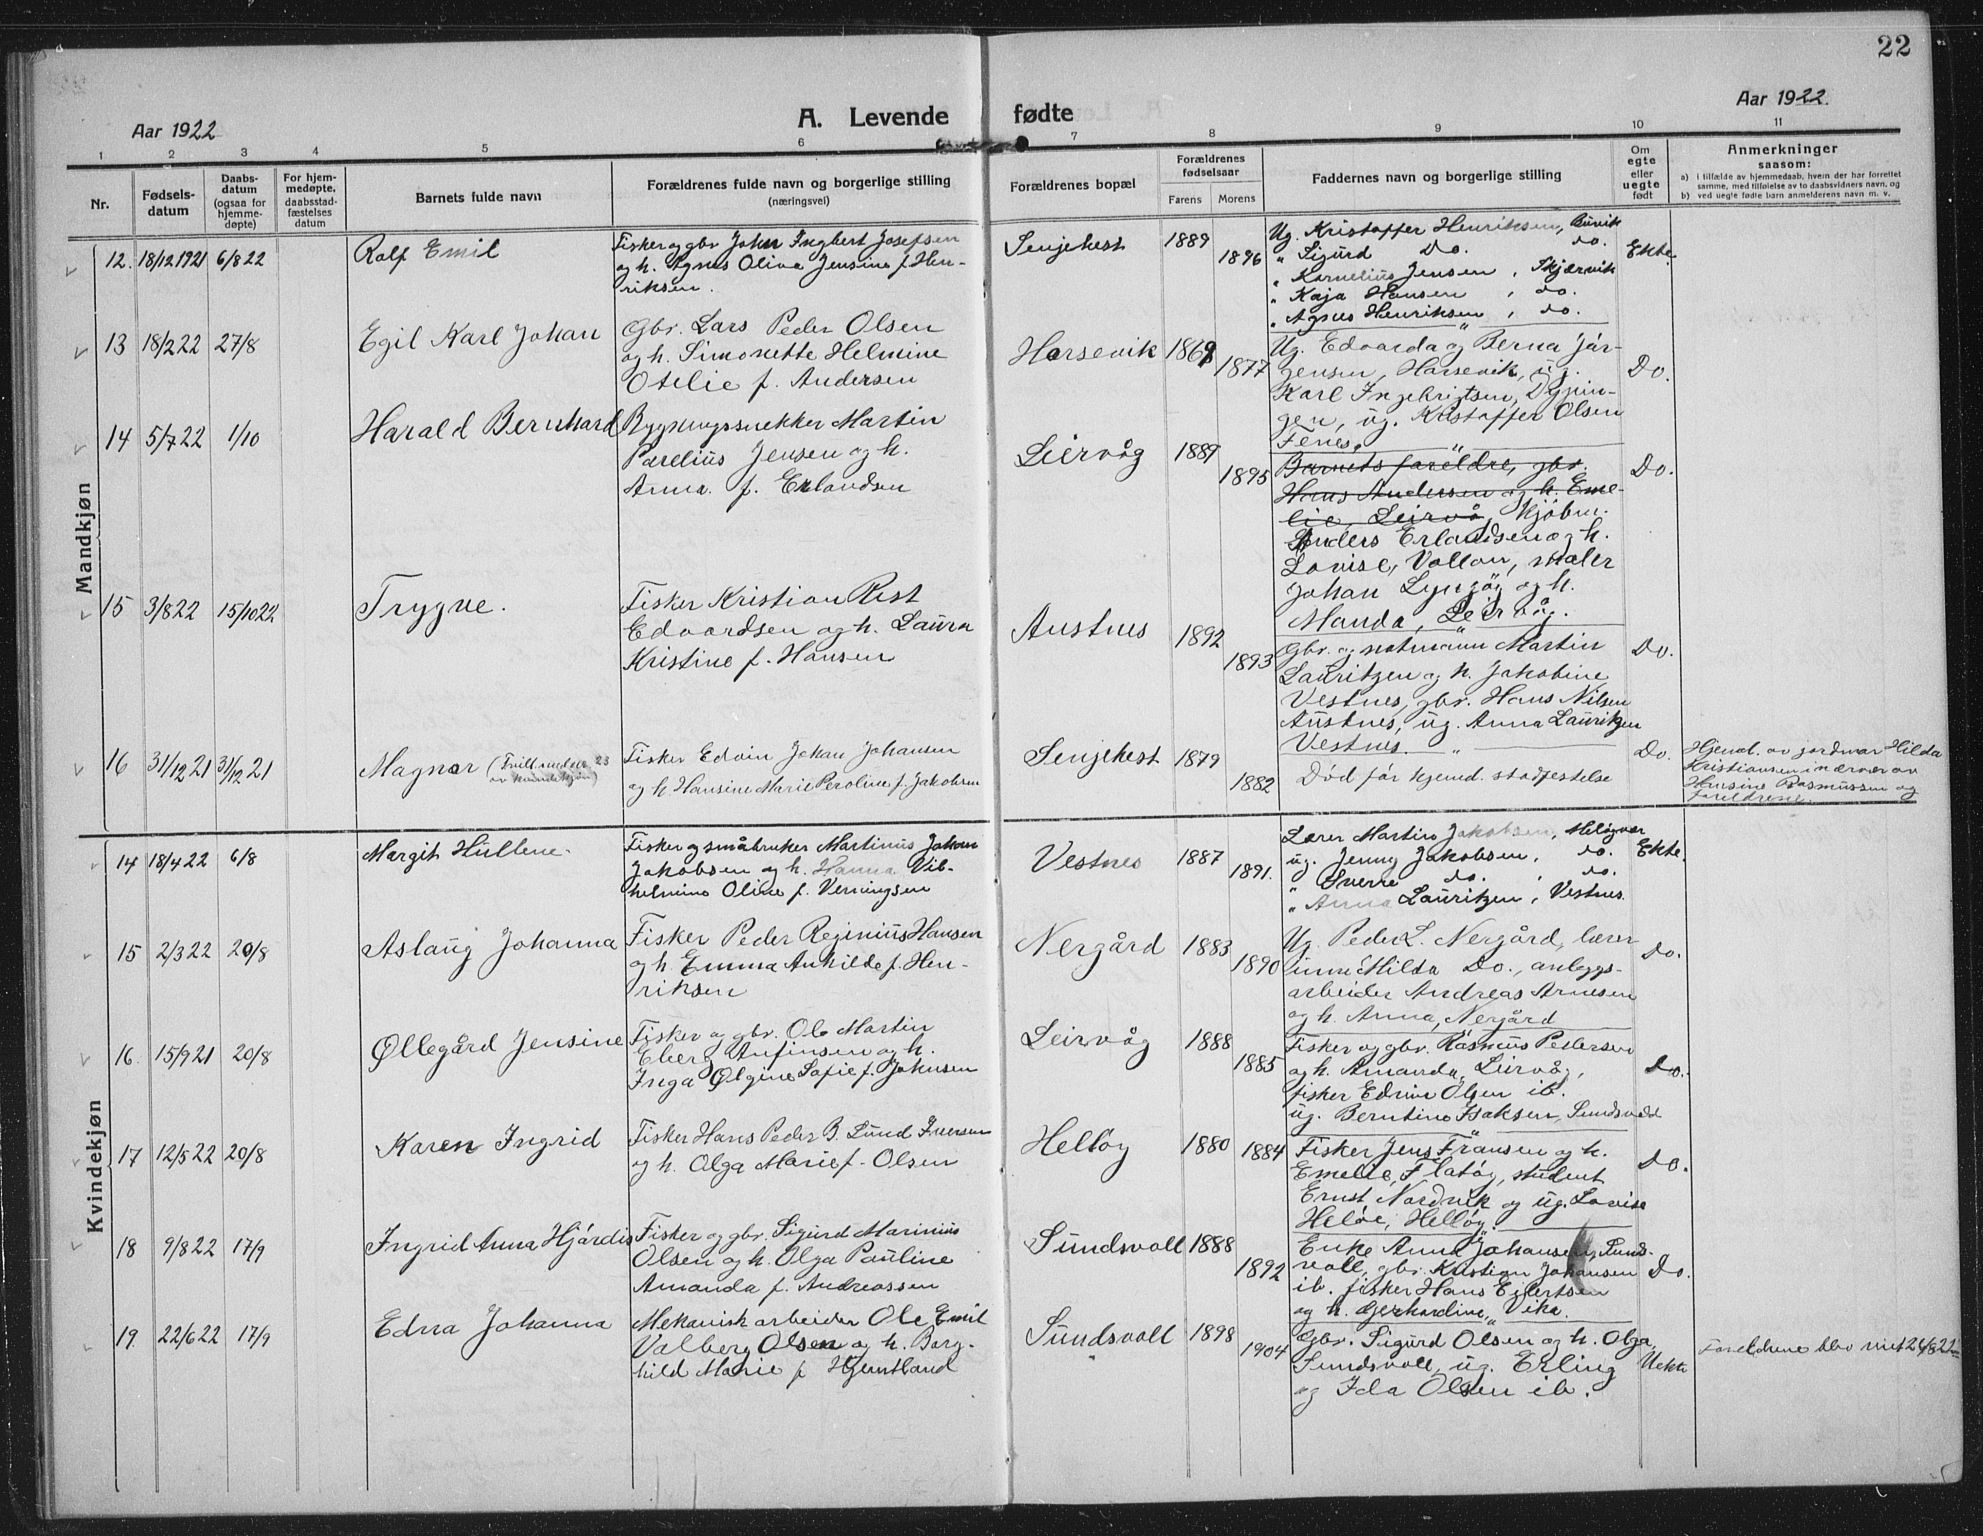 22
Aar 1922
A. Levende fødte
Aar 1922.
1 2 3 4 5 6 7 8 9 10 11
Nr.
Fødsels-
datum
Daabs-
datum
(ogsaa for
hjemme-
døpte)
For hjem-
medøpte,
daabsstad-
fæstelses
datum
Barnets fulde navn
Forældrenes fulde navn og borgerlige stilling
(næringsvei)
Forældrenes bopæl
Forældrenes
fødselsaar
Farens Morens
Faddernes navn og borgerlige stilling
Om
egte
eller
uegte
født
Anmerkninger
saasom:
a) i tilfælde av hjemmedaab, hvem der har forrettet
samme, med tilføielse av to daabsvidners navn, og
b) ved uegte fødte barn anmelderens navn m. v.
Mandkjøn
12. 18/12 1921 6/8 22
Rolf Emil
Fisker og gbr John Ingbert Josefsen
og h. Agnes Olive Jensine f. Hen-
riksen.
Senjehest 1889 1896
Ug. Kristoffer Henriksen, Burvik
" Sigurd Do. do.
" Kornelius Jensen, Skjærvik
" Kaja Hansen, do.
" Agnes Henriksen, do.
Ekte
13 18/2 22 27/8
Egil Karl Johan
Gbr. Lars Peder Olsen
og h. Simonette Helmine
Otelie f. Andersen
Harsevik 1869 1877
Ug. Edvarda og Berna Jør-
gensen, Harsevik, ug.
Karl Ingebrigtsen, Dypin-
gen, ug. Kristoffer Olsen
Fenes.
Do.
14 5/7 22 1/10
Harald Bernhard
Bygningssnekker Martin
Parelius Jensen og h.
Anna f. Erlandsen
Leirvåg 1889 1895
Barnets foreldre, gbr.
Hans Andersen og h. Eme-
lie, Leirvåg, kjøbm.
Anders Erlandsen og h.
Lovise, Vallan, maler
Johan Lyngøy og h.
Manda, Leirvåg.
Do.
15 3/8 22 15/10 22
Trygve.
Fisker Kristian Rist
Edvardsen og h. Laura
Kristine f. Hansen
Austnes 1892 1893
Gbr. og notmann Martin
Lauritzen og h. Jakobine
Vestnes, gbr. Hans Nilsen
Austnes, ug. Anna Lauritzen
Vestnes.
Do.
16 31/12 21 31/12 21
Magnar (Tvill. med nr. 23
av kvindekjøn)
Fisker Edvin Johan Johansen
og h. Hansine Marie Peroline f. Jakobsen
Senjehest 1879 1882
Død før hjemd. stadfestelse
Do.
Hjemd. av jordmor Hilda
Kristiansen i nærvær av
Hansine Rasmussen og
foreldrene.
Kvindekjøn
14 18/4 22 6/8
Margit Hullene.
Fisker og småbruker Martinus Johan
Jakobsen og h. Hanna Vil-
helmine Oline f. Verningsen
Vestnes 1887 1891.
Lærer Martin Jakobsen, Meløyvær
ug. Jenny Jakobsen, do.
" Sverre do. , do.
" Anna Lauritzen, Vestnes.
Ekte.
15 2/3 22 20/8
Aslaug Johanna
Fisker Peder Reginius Hansen
og h. Emma Anhilde f. Hen-
riksen
Nergård 1883 1890
Ug. Peder L. Nergård, lærer
inne Milda Do., anleggs-
arbeider Andreas Arnesen
og h. Anna, Nergård
Do.
16. 15/9 21 20/8
Øllegård Jensine
Fisker og gbr. Ole Martin
Eberg Anfinsen og h.
Inga Ølgine Sofie f. Johnsen
Leirvåg 1888 1885
Fisker og gbr. Rasmus Pedersen
og h. Amanda, Leirvåg,
fisker Edvin Olsen ib.
ug. Berntine Isaksen, Sundsvoll
Do.
17 12/5 22 20/8
Karen Ingrid
Fisker Hans Peder B. Lund Iversen
og h. Olga Marie f. Olsen
Helløy 1880 1884
Fisker Jens Fransen og h.
Emelie, Flatøy, student
Ernst Nordvik og ug. Lovise
Heløe, Helløy.
Do.
18 9/8 22 17/9
Ingrid Anna Hjørdis
Fisker og gbr. Sigurd Marinius
Olsen og h. Olga Pauline
Amanda f. Andreassen
Sundsvoll 1888 1892
Enke Anna Johansen, Sunds-
voll, gbr. Kristian Johansen
ib. fisker Hans Eilertsen
og h. Gerhardine, Vika.
Do.
19. 22/6 22 17/9
Edna Johanna
Mekanisk arbeider Ole Emil
Valberg Olsen og h. Borg-
hild Marie f. Hjemtland
Sundsvoll 1898 1904
Gbr. Sigurd Olsen og h. Olga
Sundsvoll, ug. Erling
og Ida Olsen ib.
Uekte
Foreldrene blev viet 26/8 22